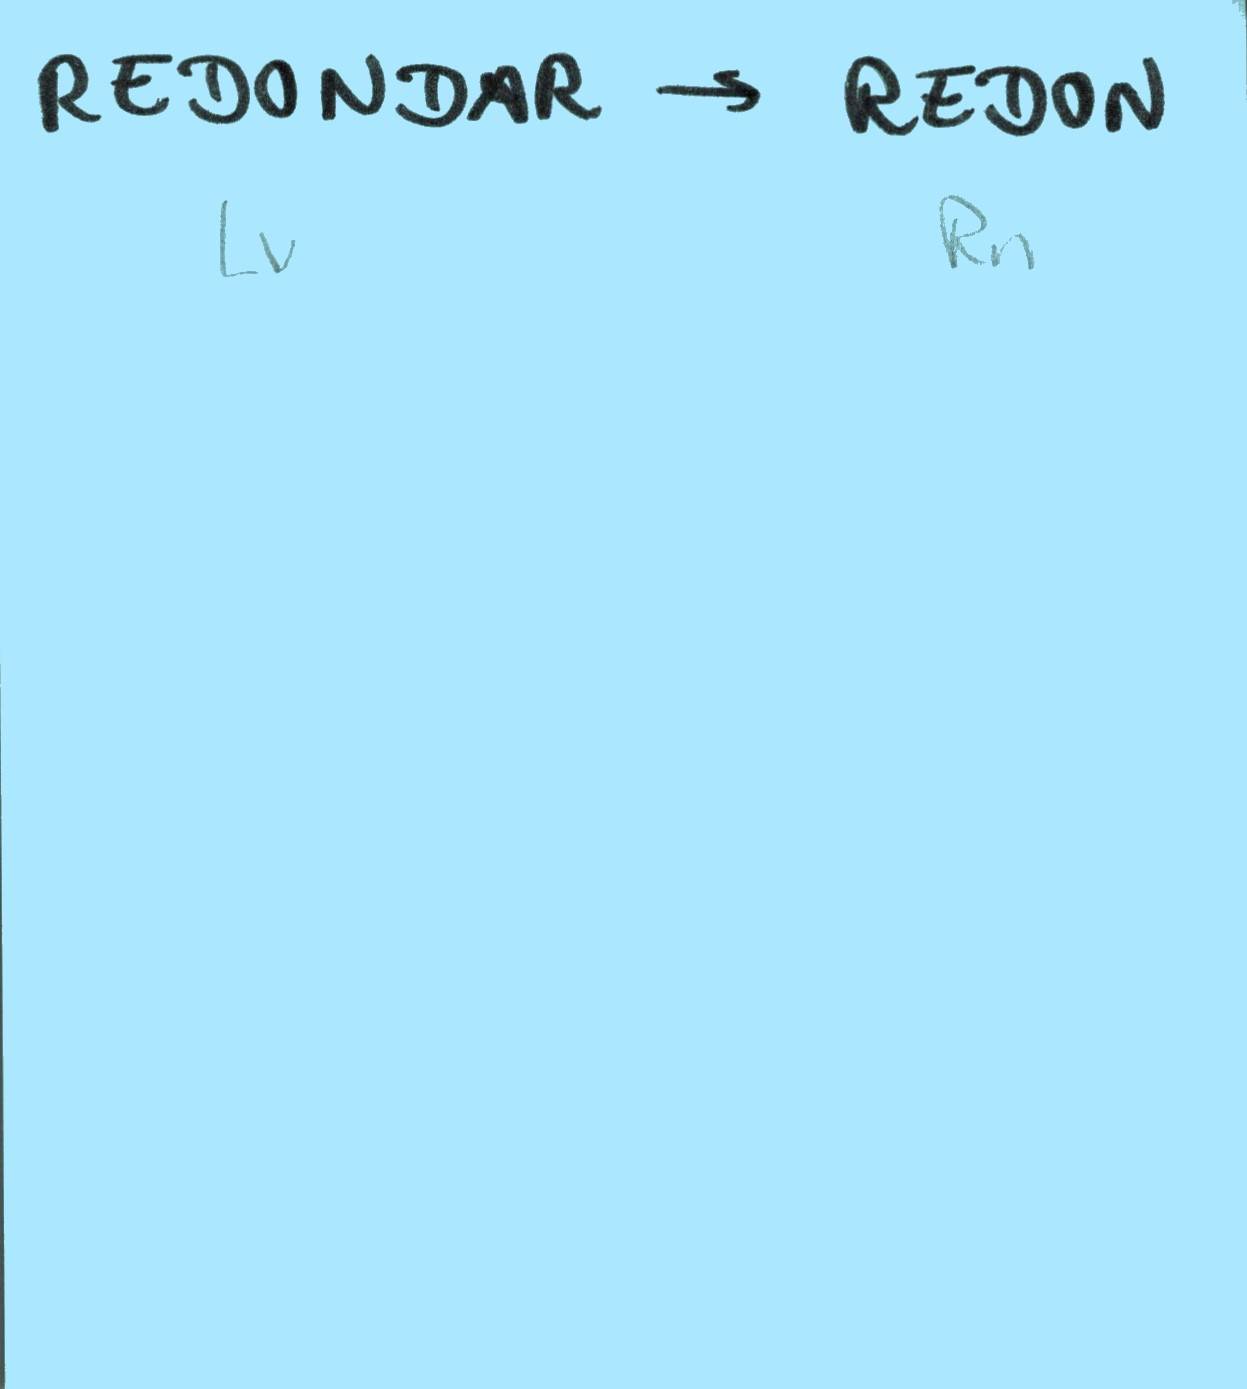 REDONDAR → REDON
Lv Rn